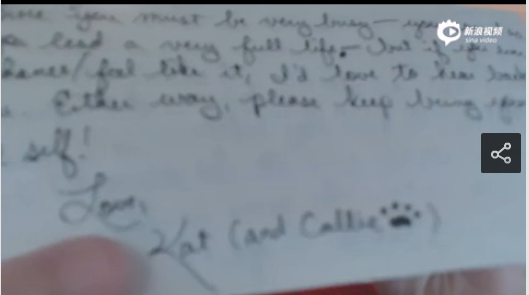 you must be very busy —
新浪视频
sina video
lead a very full life — but if you
chance/feel like it, I'd love to hear back
Either way, please keep being
self!
Love,
Kat (and Callie)